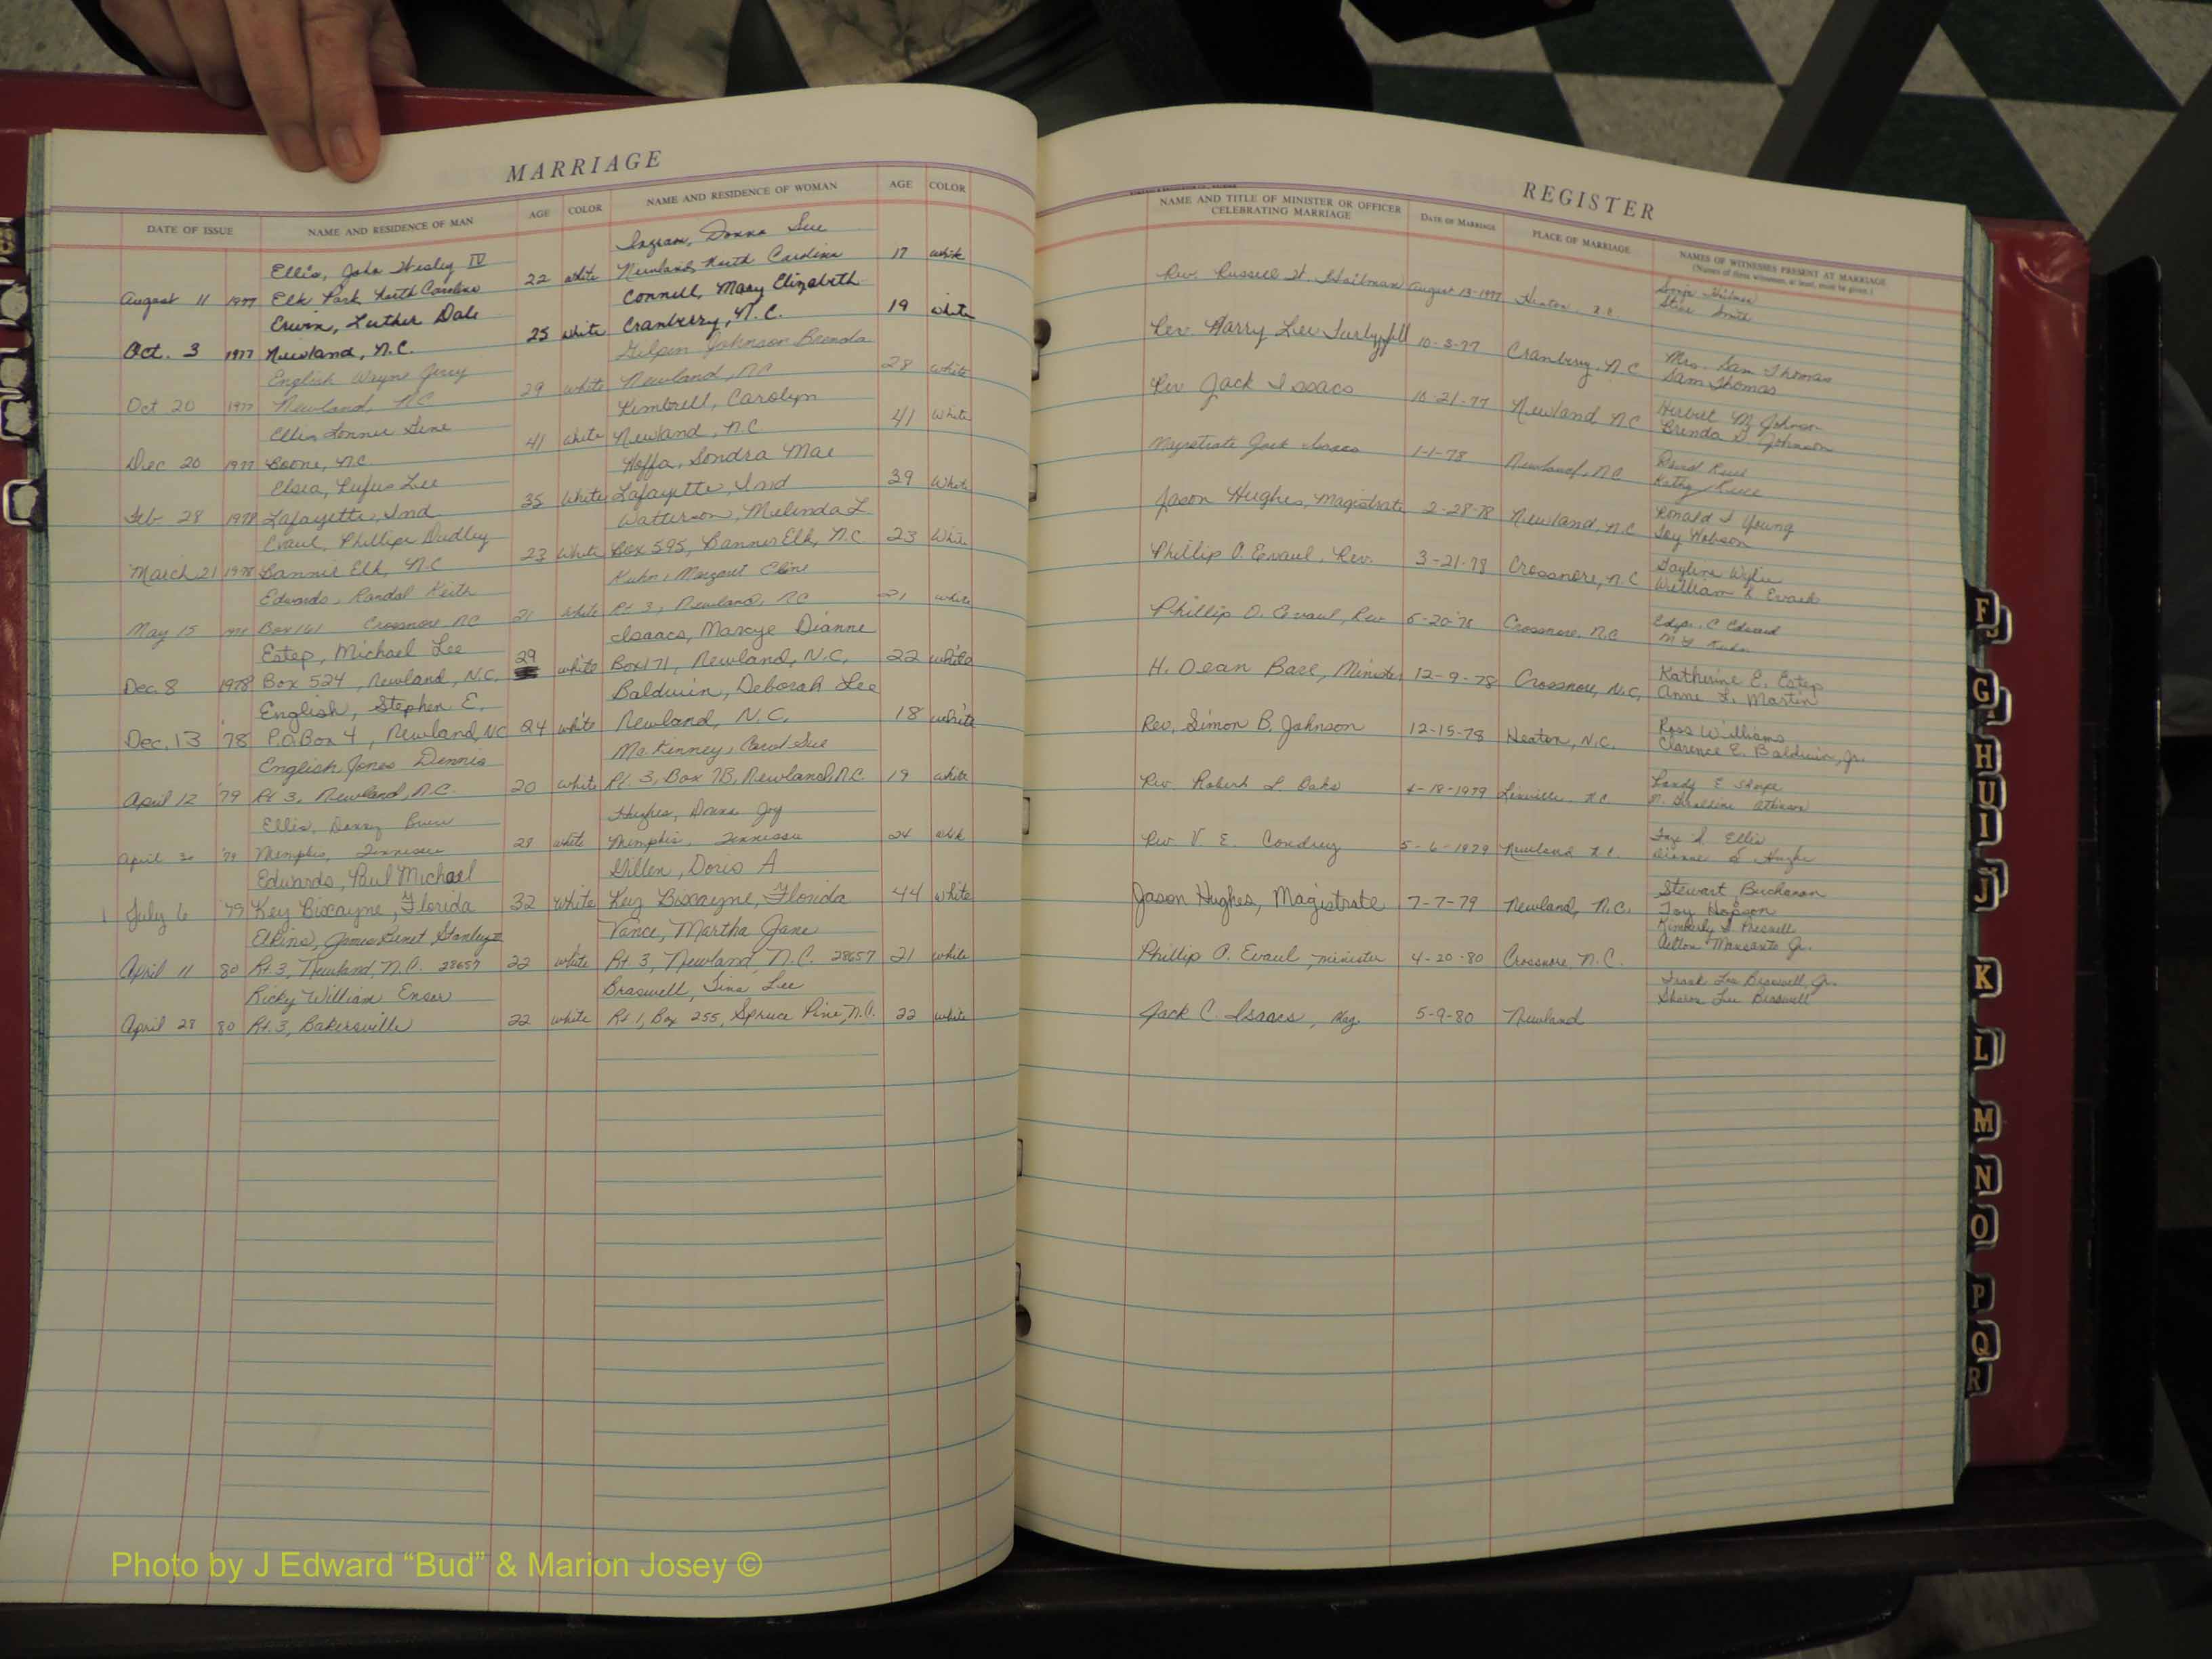 MARRIAGE
DATE OF ISSUE NAME AND RESIDENCE OF MAN AGE COLOR NAME AND RESIDENCE OF WOMAN AGE COLOR
Ellis, John Wesley IV Ingram, Donna Sue
August 11 1977 Elk Park, North Carolina 22 white Newland, North Carolina 17 white
Erwin, Luther Dale Connell, Mary Elizabeth
Oct. 3 1977 Newland, N.C. 25 white Cranberry, N.C. 19 white
English Wayne Jerry Gilpin Johnson Brenda
Oct 20 1977 Newland, NC 29 white Newland, NC 28 white
Ellis Lonnie Gene Kimbrell, Carolyn
Dec 20 1977 Boone, N.C. 41 white Newland, NC 41 white
Elsea, Rufus Lee Hoffa, Sondra Mae
Feb 28 1978 Lafayette, Ind 35 White Lafayette, Ind 39 White
Evaul, Phillip Dudley Watterson, Melinda L
March 21 1978 Banner Elk, N.C 23 White Box 595, Banner Elk, N.C 23 White
Edwards, Randal Keith Kuhn, Margaret Cline
May 15 1978 Box 161 Crossnore NC 21 White Rt 3, Newland, NC 21 white
Estep, Michael Lee Isaacs, Marcye Dianne
Dec. 8 1978 Box 524, Newland, N.C. 29 white Box 171, Newland, N.C. 22 white
English, Stephen E. Baldwin, Deborah Lee
Dec. 13 78 P.O. Box 4, Newland, NC 24 white Newland, N.C. 18 white
English Jones Dennis McKinney, Carol Sue
April 12 '79 Rt 3, Newland, N.C. 20 white Rt. 3, Box 7B, Newland, N.C. 19 white
Ellis, Danny Hughes, Donna Joy
April 30 '79 Memphis, Tennessee white Memphis, Tennessee 24
Edwards, Paul Michael Dillen, Doris A
July 6 '79 Key Biscayne, Florida 32 White Key Biscayne, Florida 44 White
Elkins, James Benet Stanley II Vance, Martha Jane
April 11 80 Rt. 3, Newland, N.C. 28657 22 white Rt 3, Newland, N.C. 28657 21 white
Ricky William Ensor Braswell, Tina Lee
April 28 80 Rt. 3, Bakersville 22 white Rt 1, Box 255, Spruce Pine, N.C. 22 white
REGISTER
NAME AND TITLE OF MINISTER OR OFFICER CELEBRATING MARRIAGE DATE OF MARRIAGE PLACE OF MARRIAGE NAMES OF WITNESSES PRESENT AT MARRIAGE
(Names of three witnesses, at least, must be given.)
Rev. Russell H. August 13-1977 Heaton, N.C.
Steve Smith
Rev Harry Lee 10-3-77 Cranberry, N.C Mrs. Sam Thomas
Sam Thomas
Rev Jack Isaacs 10-21-77 Newland, N.C Herbert M. Johnson
Brenda G. Johnson
Magistrate Jack Isaacs 1-1-78 Newland, NC
Jason Hughes, Magistrate 2-28-78 Newland, N.C Ronald J Young
Joy Hobson
Phillip O. Evaul, Rev. 3-21-78 Crossnore, N.C
William R Evaul
Phillip O. Evaul, Rev Crossnore, N.C C Edward
H. Dean Bare, Minister 12-9-78 Crossnore, N.C, Katherine E. Estep
Anne L. Martin
Rev. Simon B. Johnson 12-15-78 Heaton, N.C. Ross Williams
Clarence E. Baldwin, Jr.
Rev. Robert L Oaks 4-18-1979 Linville, N.C. Randy E Sharpe
N. Geraldine Atkinson
Rev V E. Condrey 5-6-1979 Newland N.C. Ellis
Dianne S Hughes
Jason Hughes, Magistrate 7-7-79 Newland, N.C. Stewart Buchanan
Joy Hopson
Phillip O. Evaul, minister 4-20-80 Crossnore, N.C. Kimberly S. Presnell
Jr.
Jack C. Isaacs, Mag. 5-9-80 Newland Frank Lee Braswell, Jr.
Sharon Lee Braswell
F
G
H
U
I
J
K
L
M
N
O
P
Q
R
Photo by J Edward “Bud” & Marion Josey ©